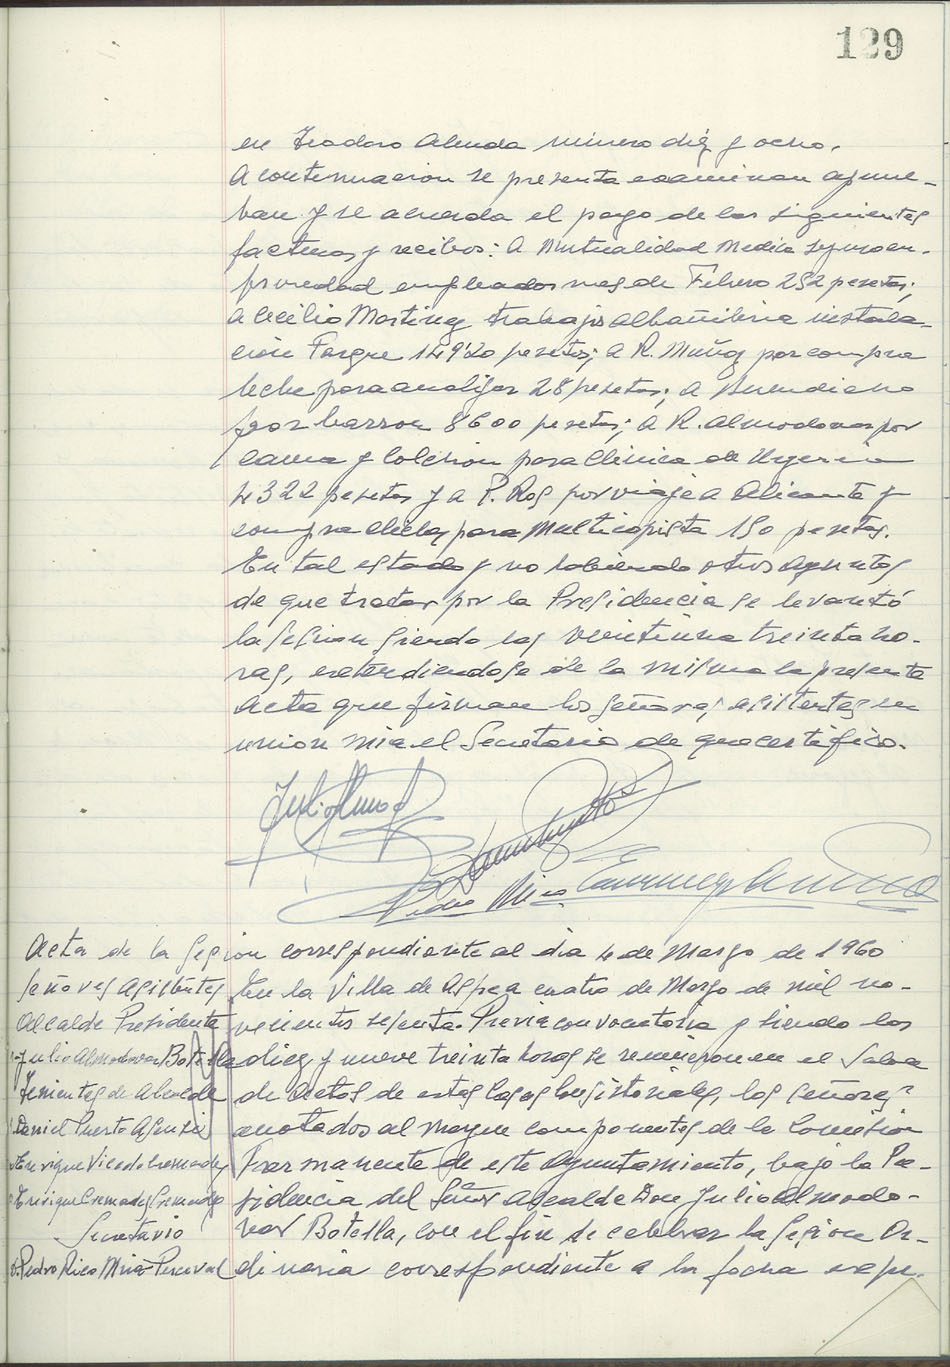 129
en Teodoro Alenda numero diez y ocho.
A continuacion se presenta examinan aprue-
ban y se acuerda el pago de las siguientes
facturas y recibos: A Mutualidad Medica seguro en-
fermedad empleados mes de Febrero 252 pesetas;
a Cecilio Martinez trabajos albañileria instala-
ción Parque 149'20 pesetas; a R. Muñoz por compra
leche para analizar 28 pesetas; a Buendia
por 8600 pesetas; a R. Almodovar por
cama y Colchon para Clinica de Urgencia
4322 pesetas y a P. Ros por viaje a Alicante y
compra para Multicopista 150 pesetas.
En tal estado y no habiendo otros asuntos
de que tratar por la Presidencia se levantó
la sesion siendo las veintiuna treinta ho-
ras, extendiendose de la misma la presente
Acta que firman los señores asistentes en
union mia el Secretario de que certifico.
Julio Almod
Pedro Rico
Acta de la Sesion correspondiente al dia 4 de Marzo de 1960
Señores Asistentes
Alcalde Presidente
D. Julio Almodovar Botella
Tenientes de Alcalde
D. Daniel Puerto Asensi
D. Enrique Vicedo Cremades
D. Enrique Cremades Cremades
Secretario
D. Pedro Rico Mira-Perceval
En la Villa de Aspe a cuatro de Marzo de mil no-
vecientos sesenta. Previa convocatoria y siendo las
diez y nueve treinta horas se reunieron en el Salon
de Actos de estas Casas Consistoriales, los señores
anotados al margen componentes de la Comision
Permanente de este Ayuntamiento, bajo la Pre-
sidencia del Señor Alcalde Don Julio Almodo-
var Botella, con el fin de celebrar la Sesion Or-
dinaria correspondiente a la fecha expe-